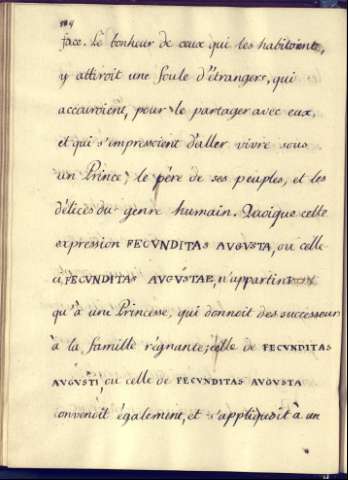 104
face. Le bonheur de ceux qui les habitoient,
y attiroit une foule d'étrangers, qui
accouroient, pour le partager avec eux,
et qui s'empressoient d'aller vivre sous
un Prince, le père de ses peuples, et les
délices du genre humain. Quoique celle
expression FECVNDITAS AVGVSTA, ou celle
a FECVNDITAS AVGVSTAE, n'appartint
qu'à une Princesse, qui donnoit des successeurs
à la famille régnante; celle de FECVNDITAS
AVGVSTI, ou celle de FECVNDITAS AVGVSTA
convenoit également, et s'appliquoit à un